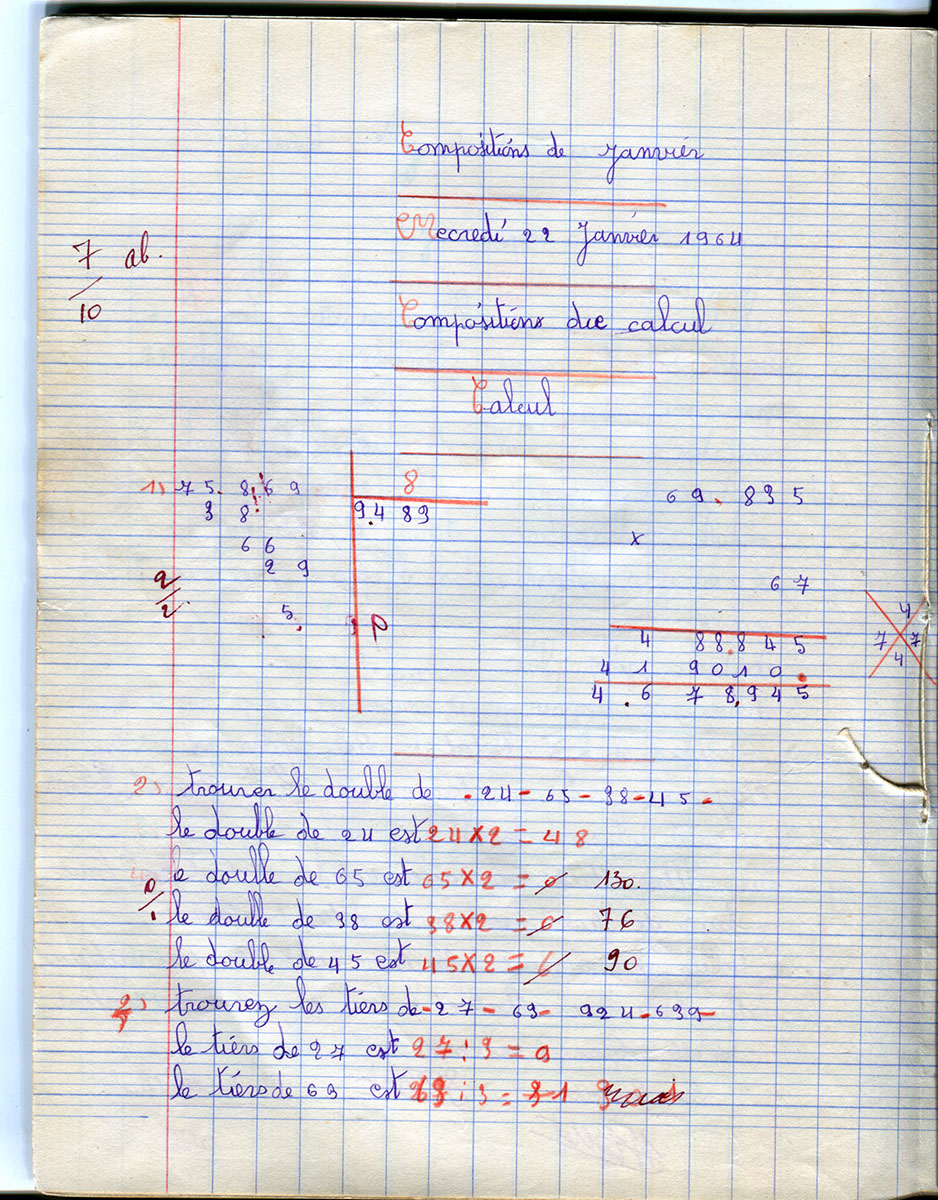 Compositions de janvier
Mecredi 22 Janvier 1964
7 ab.
10
Compositions due calcul
Calcul
1) 75.869 8
38 9.483
66
29
5
2
2
P
69.835
x
67
4 88.845
4 1 9010.
4.678.945
4
7 7
4
2) trouver le double de - 24 - 65 - 38 - 45 -
le double de 24 est 24 x 2 = 48
le double de 65 est 65 x 2 = 0 130.
0
1
le double de 38 est 38 x 2 = 6 76
le double de 45 est 45 x 2 = 90
trouvez les tiers de - 27 - 69 - 924 - 639 -
le tiers de 27 est 27 : 3 = 9
le tiers de 63 est 63 : 3 =